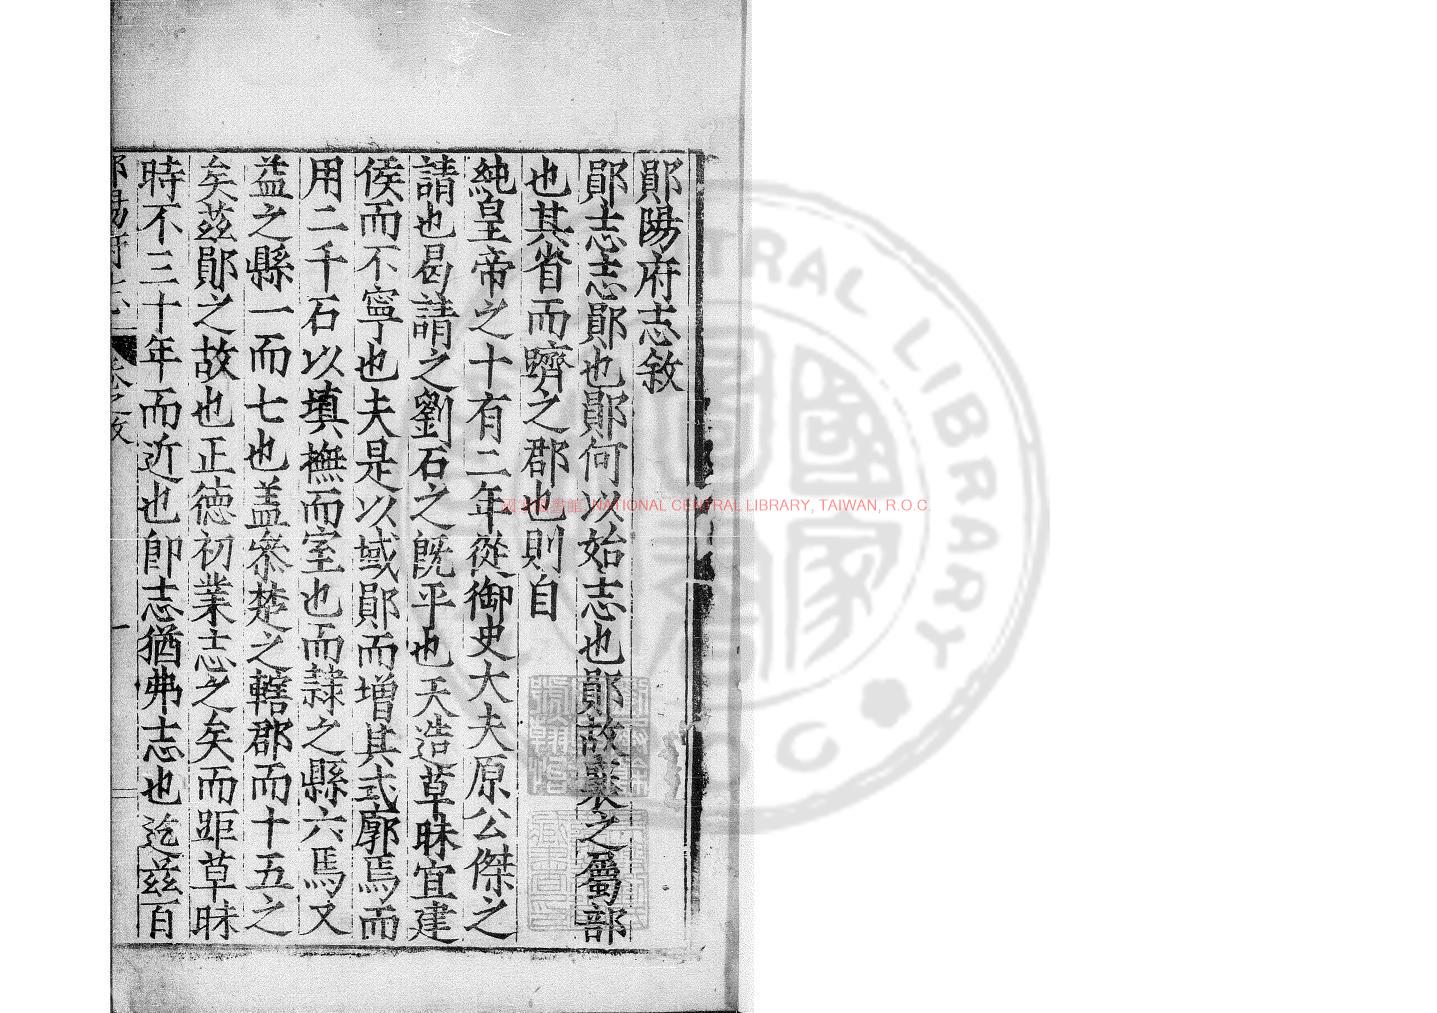 鄖陽府志敘
鄖志志鄖也鄖何以始志也鄖故襄之屬部
也其省而躋之郡也則自
純皇帝之十有二年從御史大夫原公傑之
請也曷請之劉石之既平也天造草昧宜建
侯而不寧也夫是以域鄖而增其式廓焉而
用二千石以填撫而室也而隸之縣六焉又
益之縣一而七也蓋叅楚之轄郡而十五之
矣茲鄖之故也正德初業志之矣而距草昧
時不三十年而近也卽志猶弗志也迄茲百
鄖陽府志
一
國家圖書館, NATIONAL CENTRAL LIBRARY, TAIWAN, R.O.C